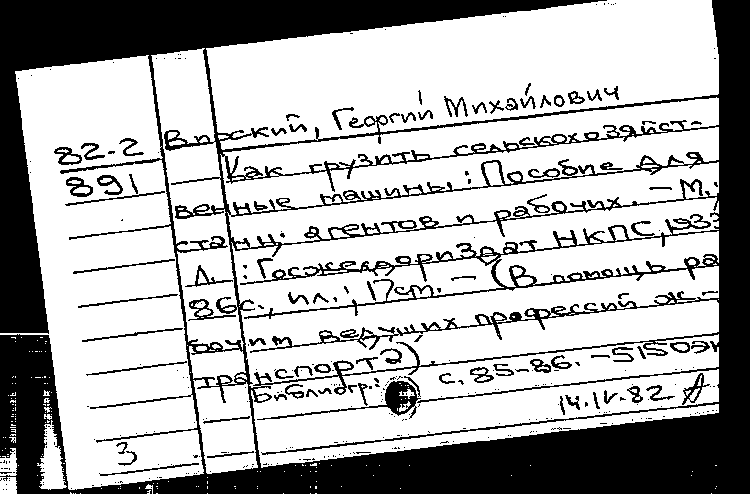 82-2
891
Вирский, Георгий Михайлович
Как грузить сельскохозяйст-
венные машины: Пособие для
станц. агентов и рабочих. – М.;
Л.: Госжелдориздат НКПС, 1933
86с., ил.; 17см. – (В помощь ра
бочим ведущих профессий ж.-
транспорта).
Библиогр.: с. 85-86. – 5150эк
14.IV.82
3